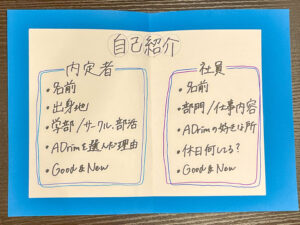 自己紹介
内定者
・名前
・出身地
・学部/サークル、部活
・ADrimを選んだ理由
・Good & New
社員
・名前
・部門/仕事内容
・ADrimの好きな所
・休日何してる?
・Good & New